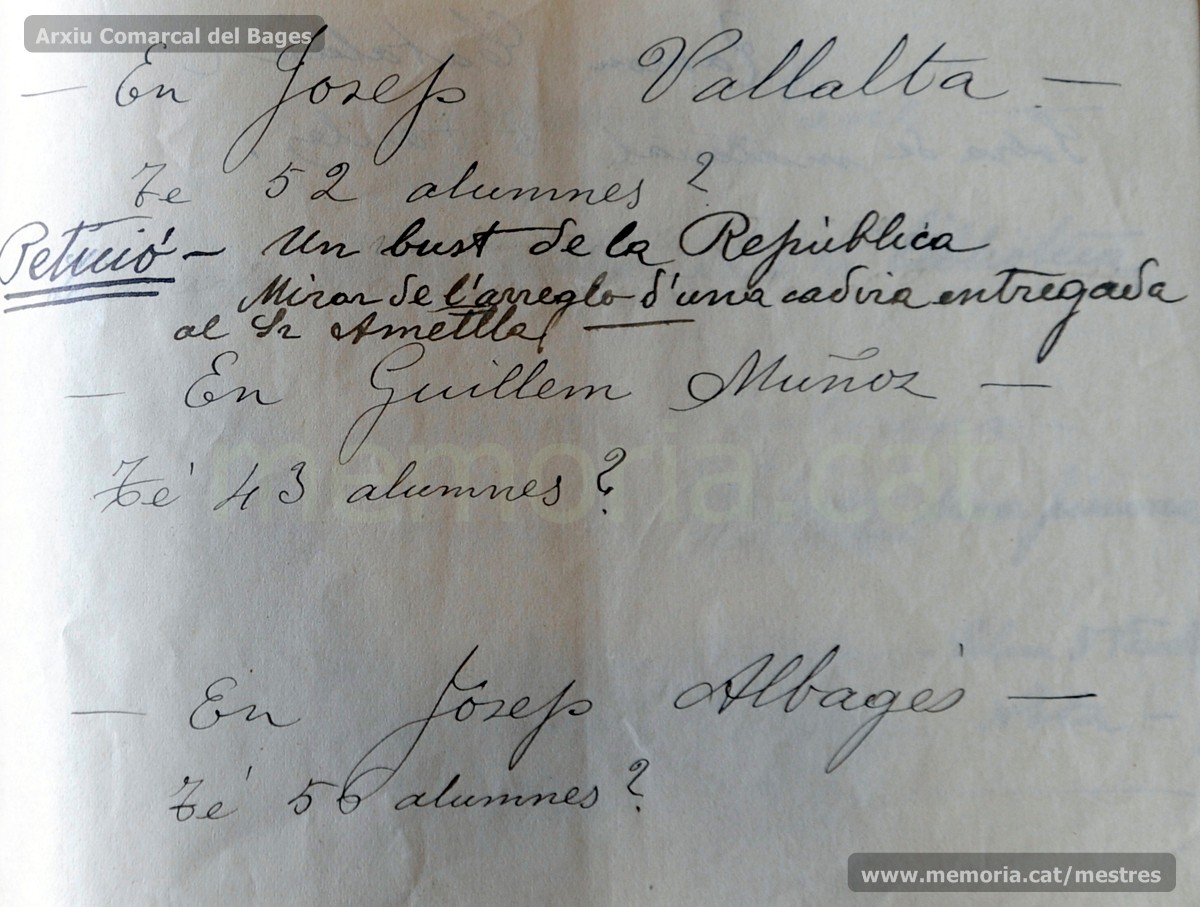 Arxiu Comarcal del Bages
— En Josep Vallalta —
Té 52 alumnes?
Petició — Un bust de la República
Mirar de l'arreglo d'una cadira entregada
al Sr Ametlla
— En Guillem Muñoz —
Té 43 alumnes?
memoria.cat
— En Josep Albagès —
Té 56 alumnes?
www.memoria.cat/mestres